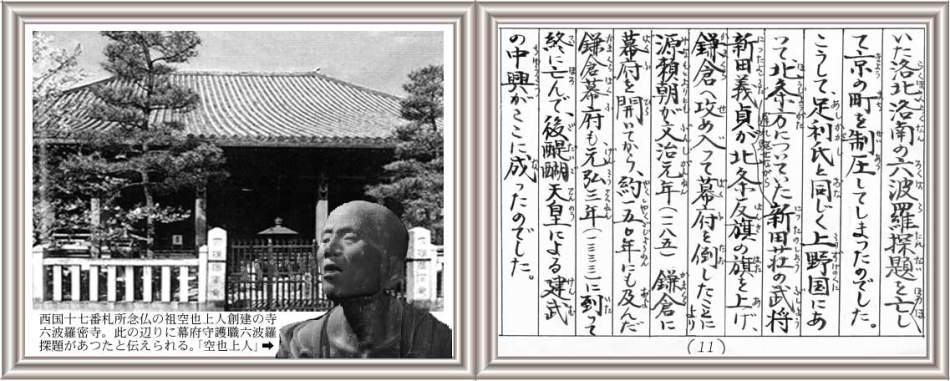 西国十七番札所念仏の祖空也上人創建の寺
六波羅密寺。此の辺りに幕府守護職六波羅
探題があつたと伝えられる。「空也上人」➡
いた洛北洛南の六波羅探題を亡し
て京の町を制圧してしまったのでした。
こうして、足利氏と同じく上野国にあ
って北条方についていた新田荘の武将
新田義貞が北条反旗の旗を上げ、
鎌倉へ攻め入って幕府を倒したことにより
源頼朝が文治元年(一一八五)鎌倉に
幕府を開いてから、約一五〇年にも及んだ
鎌倉幕府も元弘三年(一三三三)に到って
終に亡んで、後醍醐天皇による建武
の中興がここに成ったのでした。
(11)